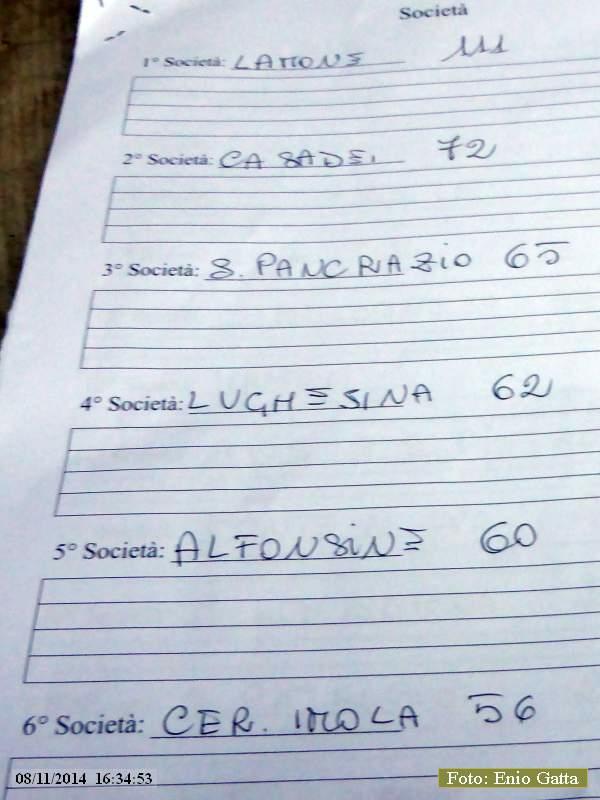 Società
1° Società: LAMONE 111
2° Società: CASADEI 72
3° Società: S. PANCRAZIO 65
4° Società: LUGHESINA 62
5° Società: ALFONSINE 60
6° Società: CER. IMOLA 56
08/11/2014 16:34:53
Foto: Enio Gatta